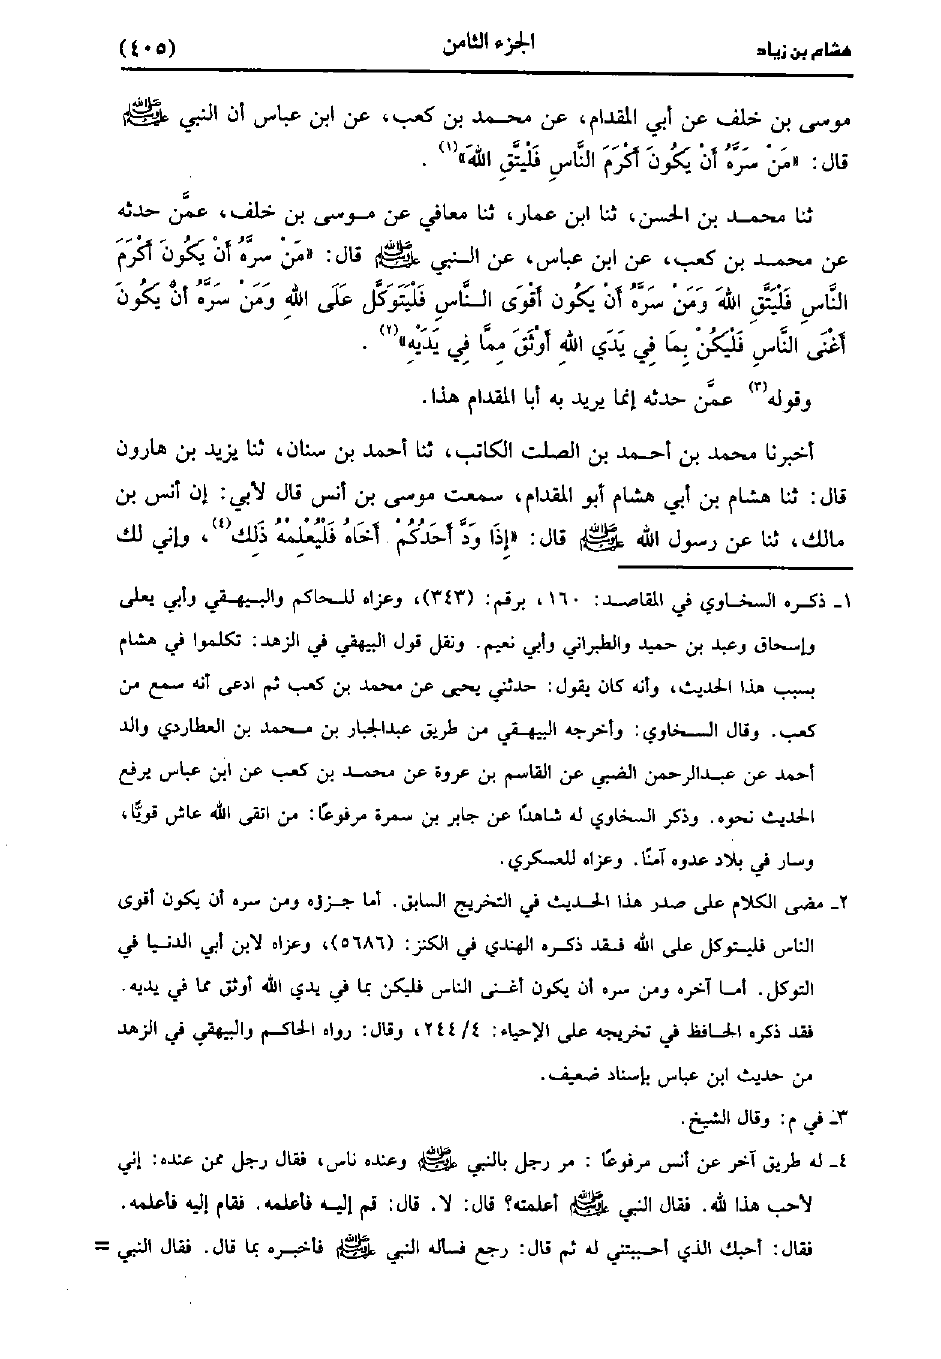 هشام بن زياد
الجزء الثامن
(٤٠٥)
موسى بن خلف عن أبي المقدام، عن محمد بن كعب، عن ابن عباس أن النبي ﷺ
قال: «مَنْ سَرَّهُ أَنْ يَكُونَ أَكْرَمَ النَّاسِ فَلْيَتَّقِ اللهَ»(١) .
ثنا محمد بن الحسن، ثنا ابن عمار، ثنا معافي عن موسى بن خلف، عمَّن حدثه
عن محمد بن كعب، عن ابن عباس، عن النبي ﷺ قال: «مَنْ سرَّهُ أَنْ يَكُونَ أَكْرَمَ
النَّاسِ فَلْيَتَّقِ اللهَ وَمَنْ سَرَّهُ أَنْ يَكُونَ أَقْوَى النَّاسِ فَلْيَتَوَكَّلْ عَلَى اللهِ وَمَنْ سَرَّهُ أَنْ يَكُونَ
أَغْنَى النَّاسِ فَلْيَكُنْ بِمَا فِي يَدَيِ اللهِ أَوْثَقَ مِمَّا فِي يَدَيْهِ»(٢) .
وقوله(٣) عمَّن حدثه إنما يريد به أبا المقدام هذا.
أخبرنا محمد بن أحمد بن الصلت الكاتب، ثنا أحمد بن سنان، ثنا يزيد بن هارون
قال: ثنا هشام بن أبي هشام أبو المقدام، سمعت موسى بن أنس قال لأبي: إن أنس بن
مالك، ثنا عن رسول الله ﷺ قال: «إِذَا وَدَّ أَحَدُكُمْ أَخَاهُ فَلْيُعْلِمْهُ ذَلِكَ(٤)، وإني لك
١ـ ذكره السخاوي في المقاصد: ١٦٠، برقم: (٣٤٣)، وعزاه للحاكم والبيهقي وأبي يعلى
وإسحاق وعبد بن حميد والطبراني وأبي نعيم. ونقل قول البيهقي في الزهد: تكلموا في هشام
بسبب هذا الحديث، وأنه كان يقول: حدثني يحيى عن محمد بن كعب ثم ادعى أنه سمع من
كعب. وقال السخاوي: وأخرجه البيهقي من طريق عبدالجبار بن محمد بن العطاردي والد
أحمد عن عبدالرحمن الضبي عن القاسم بن عروة عن محمد بن كعب عن ابن عباس يرفع
الحديث نحوه. وذكر السخاوي له شاهدًا عن جابر بن سمرة مرفوعًا: من اتقى الله عاش قويًّا،
وسار في بلاد عدوه آمنًا. وعزاه للعسكري.
٢ـ مضى الكلام على صدر هذا الحديث في التخريج السابق. أما جزؤه ومن سره أن يكون أقوى
الناس فليتوكل على الله فقد ذكره الهندي في الكنز: (٥٦٨٦)، وعزاه لابن أبي الدنيا في
التوكل. أما آخره ومن سره أن يكون أغنى الناس فليكن بما في يدي الله أوثق مما في يديه.
فقد ذكره الحافظ في تخريجه على الإحياء: ٢٤٤/٤، وقال: رواه الحاكم والبيهقي في الزهد
من حديث ابن عباس بإسناد ضعيف.
٣ـ في م: وقال الشيخ.
٤ـ له طريق آخر عن أنس مرفوعًا : مر رجل بالنبي ﷺ وعنده ناس، فقال رجل ممن عنده: إني
لأحب هذا لله. فقال النبي ﷺ أعلمته؟ قال: لا. قال: قم إليه فأعلمه. فقام إليه فأعلمه.
فقال: أحبك الذي أحببتني له ثم قال: رجع فسأله النبي ﷺ فأخبره بما قال. فقال النبي =